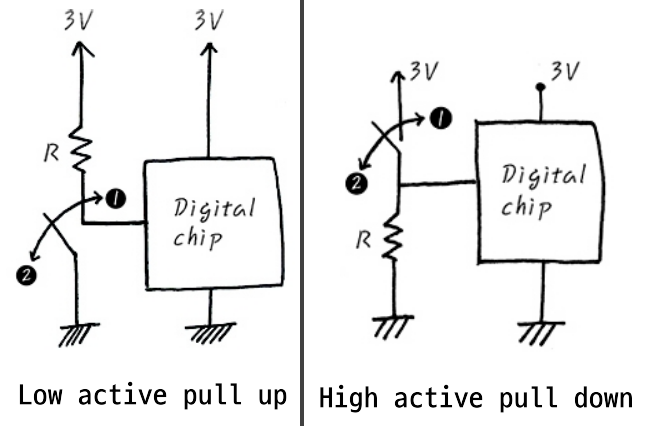 3V
3V
R
❶
❷
Digital
chip
Low active pull up
3V
3V
❶
❷
R
Digital
chip
High active pull down